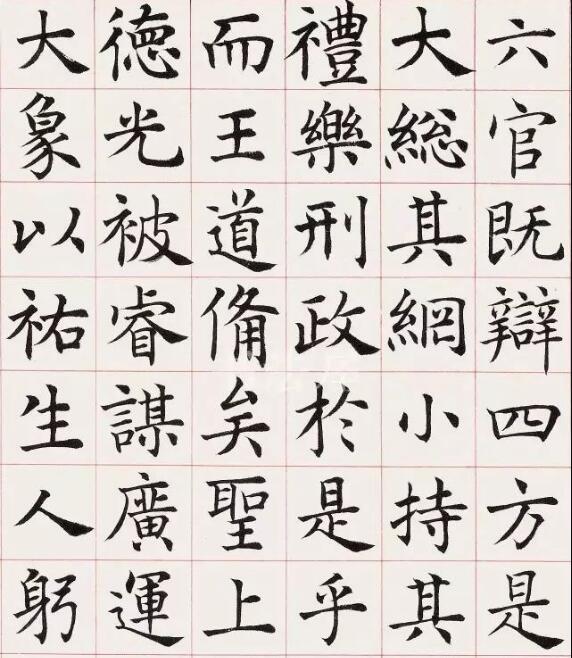 六官既辯四方是
大總其網小持其
禮樂刑政於是乎
而王道備矣聖上
德光被睿謀廣運
大象以祐生人躬